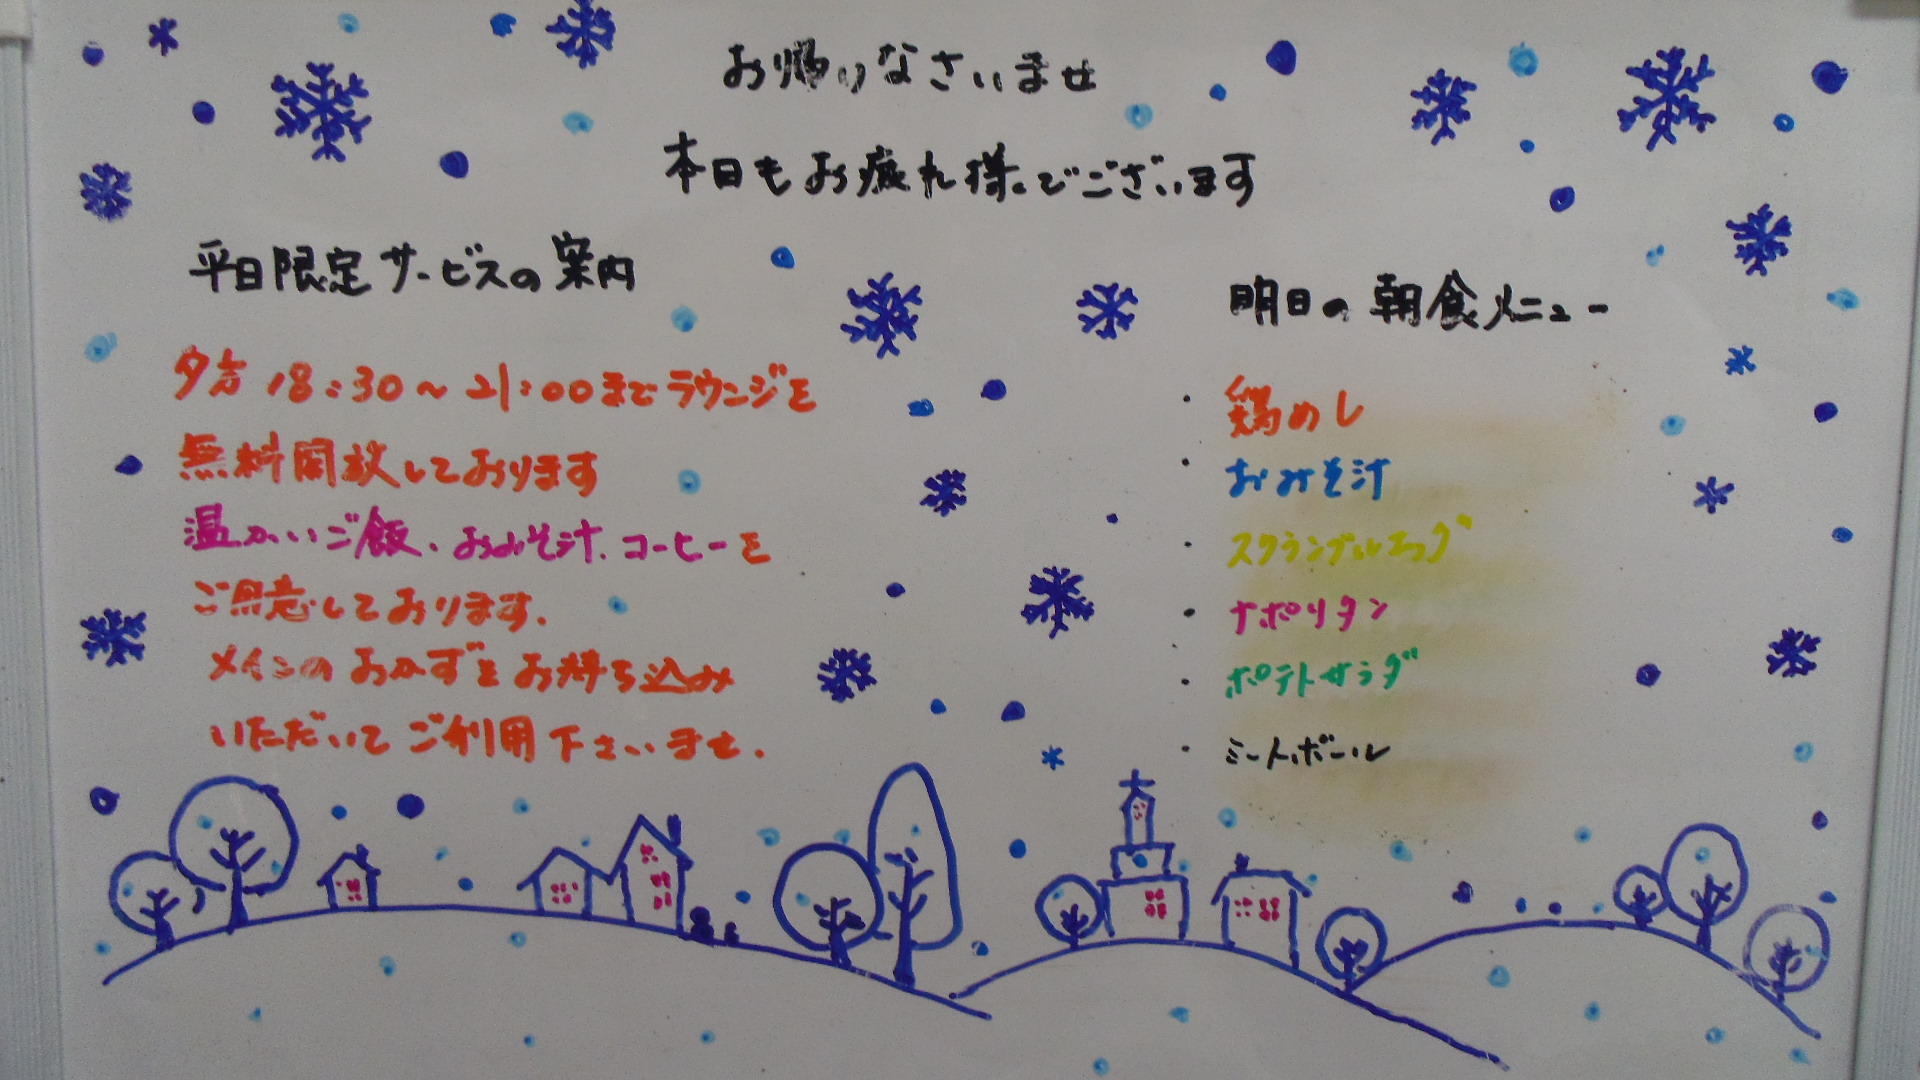 お帰りなさいませ
本日もお疲れ様でございます
平日限定サービスの案内
夕方 18:30~21:00まで ラウンジを
無料開放しております
温かいご飯、おみそ汁、コーヒーを
ご用意しております.
メインのおかずをお持ち込み
いただいてご利用下さいませ.
明日の朝食メニュー
・鶏めし
・おみそ汁
・スクランブルエッグ
・ナポリタン
・ポテトサラダ
・ミートボール